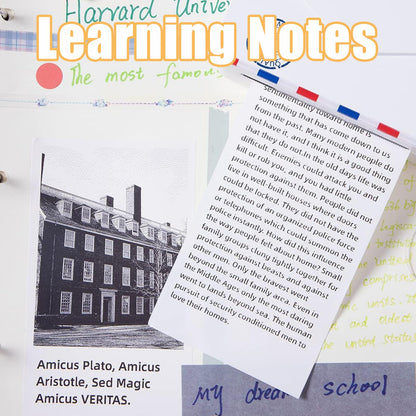 Harvard Univer
Learning Notes
The most famous
sentimentality toward home is
something that has come down to us
from the past. Many modern people do
not have it, and I think it is a good thing
that they do not. In the old days life was
difficult. Enemies could attack you and
kill or rob you, and you had little
protection against them. People did not
live in well-built houses where doors
could be locked. They did not have the
protection of an organized police force
or telephones which could summon the
police instantly. How did this influence
the way people felt about home? Small
family groups clung tightly together for
protection against beasts and against
other men. Only the bravest went
beyond the small family area. Even in
the Middle Ages only the most daring
went to lands beyond sea. The human
pursuit of security conditioned men to
love their homes.
Amicus Plato, Amicus
Aristotle, Sed Magic
Amicus VERITAS.
and oldest
the united states
My dream school